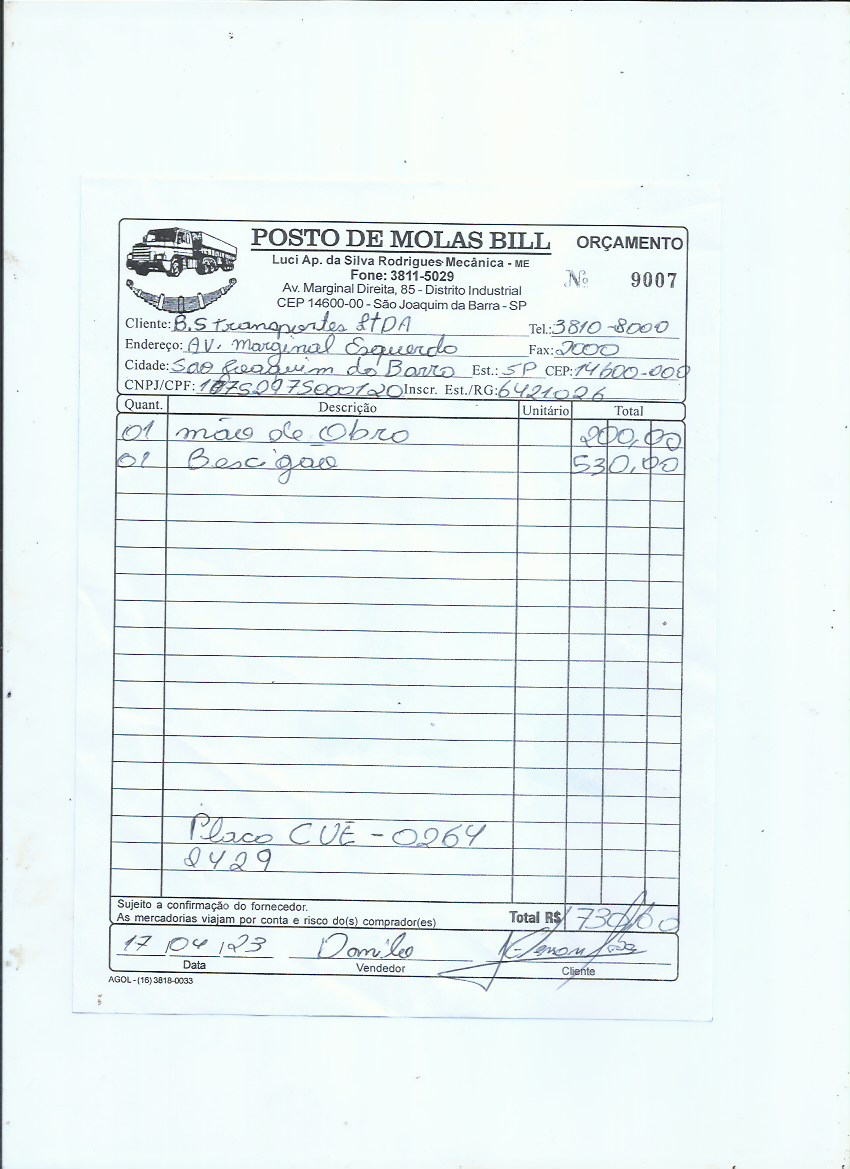 POSTO DE MOLAS BILL ORÇAMENTO
Luci Ap. da Silva Rodrigues Mecânica - ME
Fone: 3811-5029
Nº 9007
Av. Marginal Direita, 85 - Distrito Industrial
CEP 14600-00 - São Joaquim da Barra - SP
Cliente: B.S transportes LTDA Tel.: 3810-8000
Endereço: AV. Marginal Esquerdo Fax: 2000
Cidade: Sao Joaquim do Barro Est.: SP CEP: 14600-000
CNPJ/CPF: Inscr. Est./RG: 6421026
Quant. Descrição Unitário Total
01 mão de Obro 200,00
01 Bescigao 530,00
Placo CUE - 0264
2429
Sujeito a confirmação do fornecedor.
As mercadorias viajam por conta e risco do(s) comprador(es)
Total R$ 730,00
17 / 04 / 23 Danilo
Data Vendedor Cliente
AGOL - (16) 3818-0033